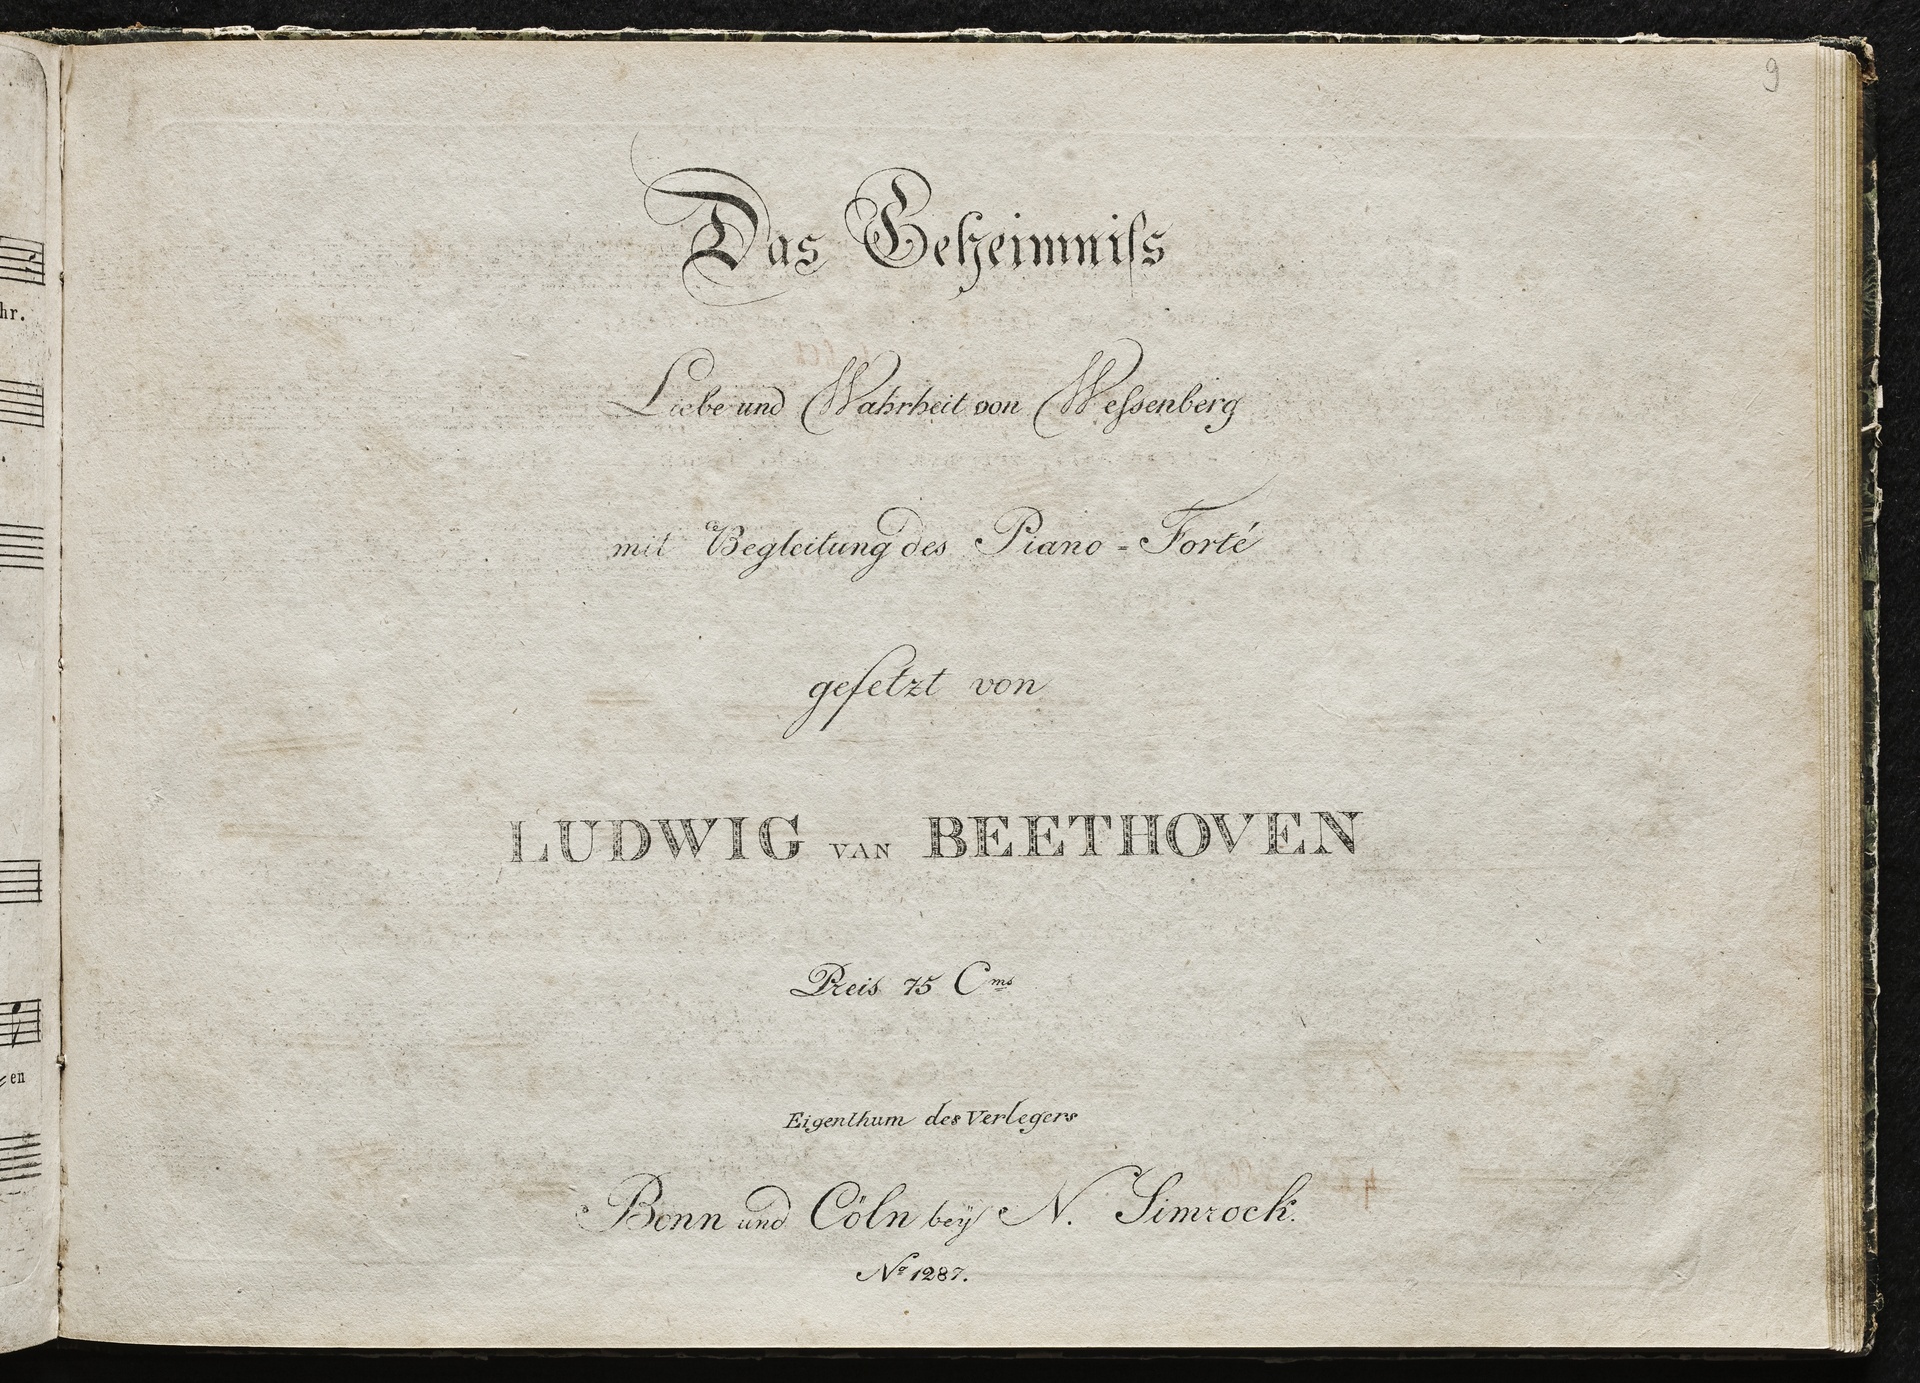 9
Das Geheimniſs
Liebe und Wahrheit von Weſsenberg
mit Begleitung des Piano-Forté
geſetzt von
LUDWIG VAN BEETHOVEN
Preis 75 Cms
Eigenthum des Verlegers
Bonn und Cöln beÿ N. Simrock.
No 1287.
hr.
en